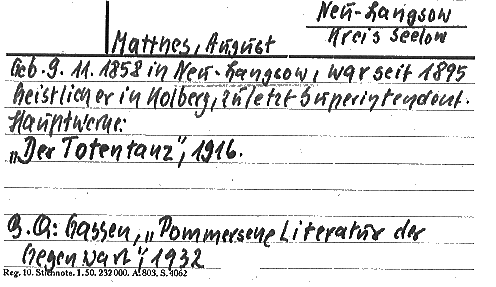 Neu-Langsow
Kreis Seelow
Matthes, August
Geb. 9. 11. 1858 in Neu-Langsow, war seit 1895
Geistlicher in Kolberg, zuletzt Superintendent.
Hauptwerke:
„Der Totentanz", 1916.
B.A: Gassen, „Pommersche Literatur der
Gegenwart", 1932
Reg. 10. Stichnote. 1. 50. 232 000. A. 803. S. 4062